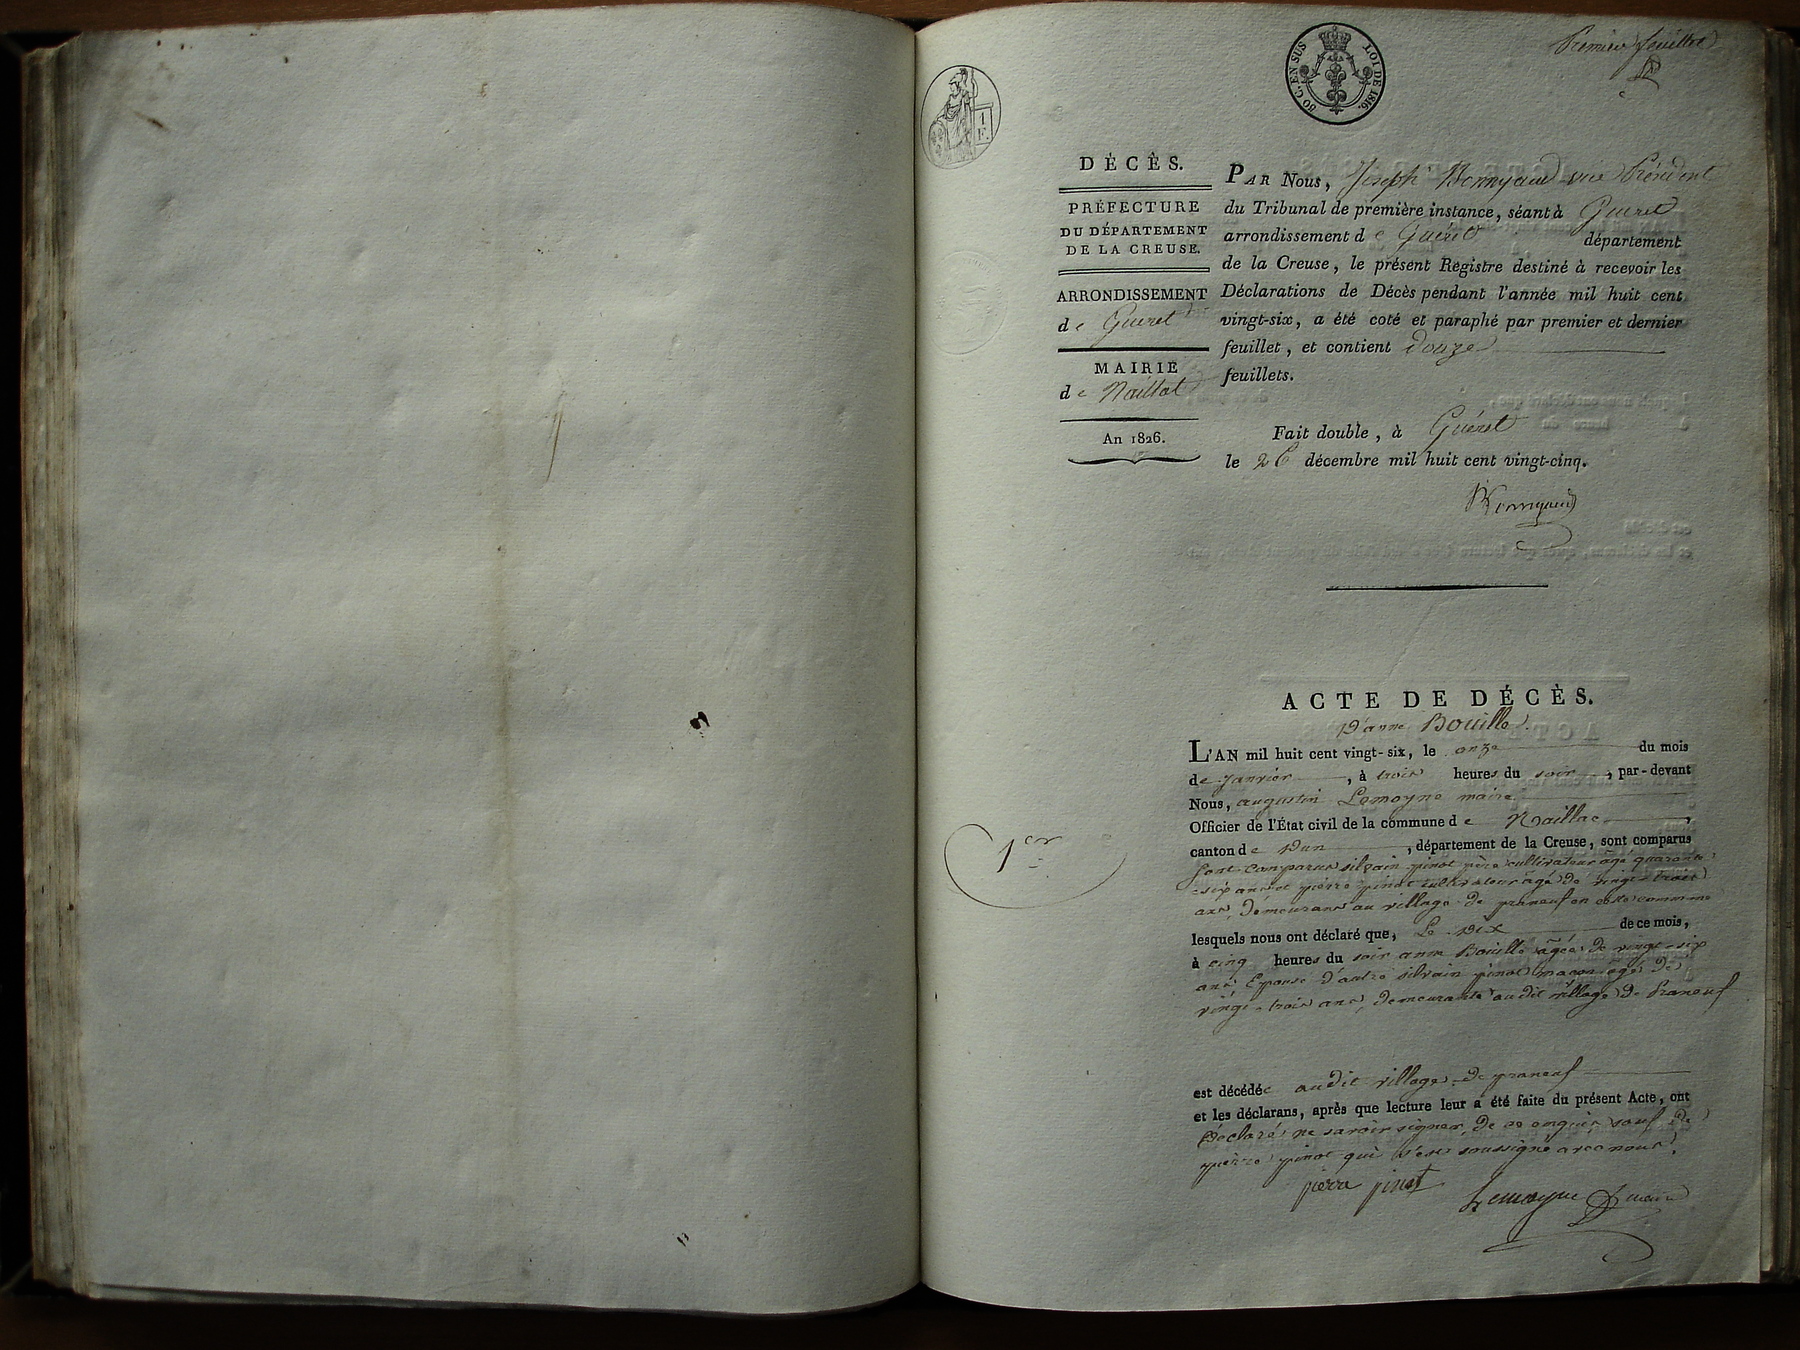 Premier feuillet
80 C. EN SUS
LOI DE 1816.
1
F.
DÉCÈS.
PRÉFECTURE
DU DÉPARTEMENT
DE LA CREUSE.
ARRONDISSEMENT
de Gueret
MAIRIE
de Naillat
An 1826.
PAR Nous, Joseph Bonnyaud vice Président
du Tribunal de première instance, séant à Gueret
arrondissement de Guéret département
de la Creuse, le présent Registre destiné à recevoir les
Déclarations de Décès pendant l'année mil huit cent
vingt-six, a été coté et paraphé par premier et dernier
feuillet, et contient douze
feuillets.
Fait double, à Guéret
le 26 décembre mil huit cent vingt-cinq.
Bonnyaud
ACTE DE DÉCÈS.
D'anne Bouille
L'AN mil huit cent vingt-six, le onze du mois
de janvier, à trois heures du soir, par-devant
Nous, augustin Lemoyne maire
Officier de l'État civil de la commune de Naillac,
canton de Dun, département de la Creuse, sont comparus
1er
sont comparus silvain pinot père cultivateur âgé quarante
-six ans et pierre pinot cultivateur âgé de vingt-trois
ans, demeurans au village de praneuf en cette commune
lesquels nous ont déclaré que, Le dix de ce mois,
à cinq heures du soir anne Bouille âgée de vingt-six
ans Epouse d'autre silvain pinot maçon âgé de
vingt-trois ans, demeurante audit village de Praneuf
est décédée audit village de praneuf
et les déclarans, après que lecture leur a été faite du présent Acte, ont
Déclaré ne savoir signer, de ce enquis sauf de
pierre pinot qui s'est soussigné avec nous.
pierre pinot
Lemoyne maire